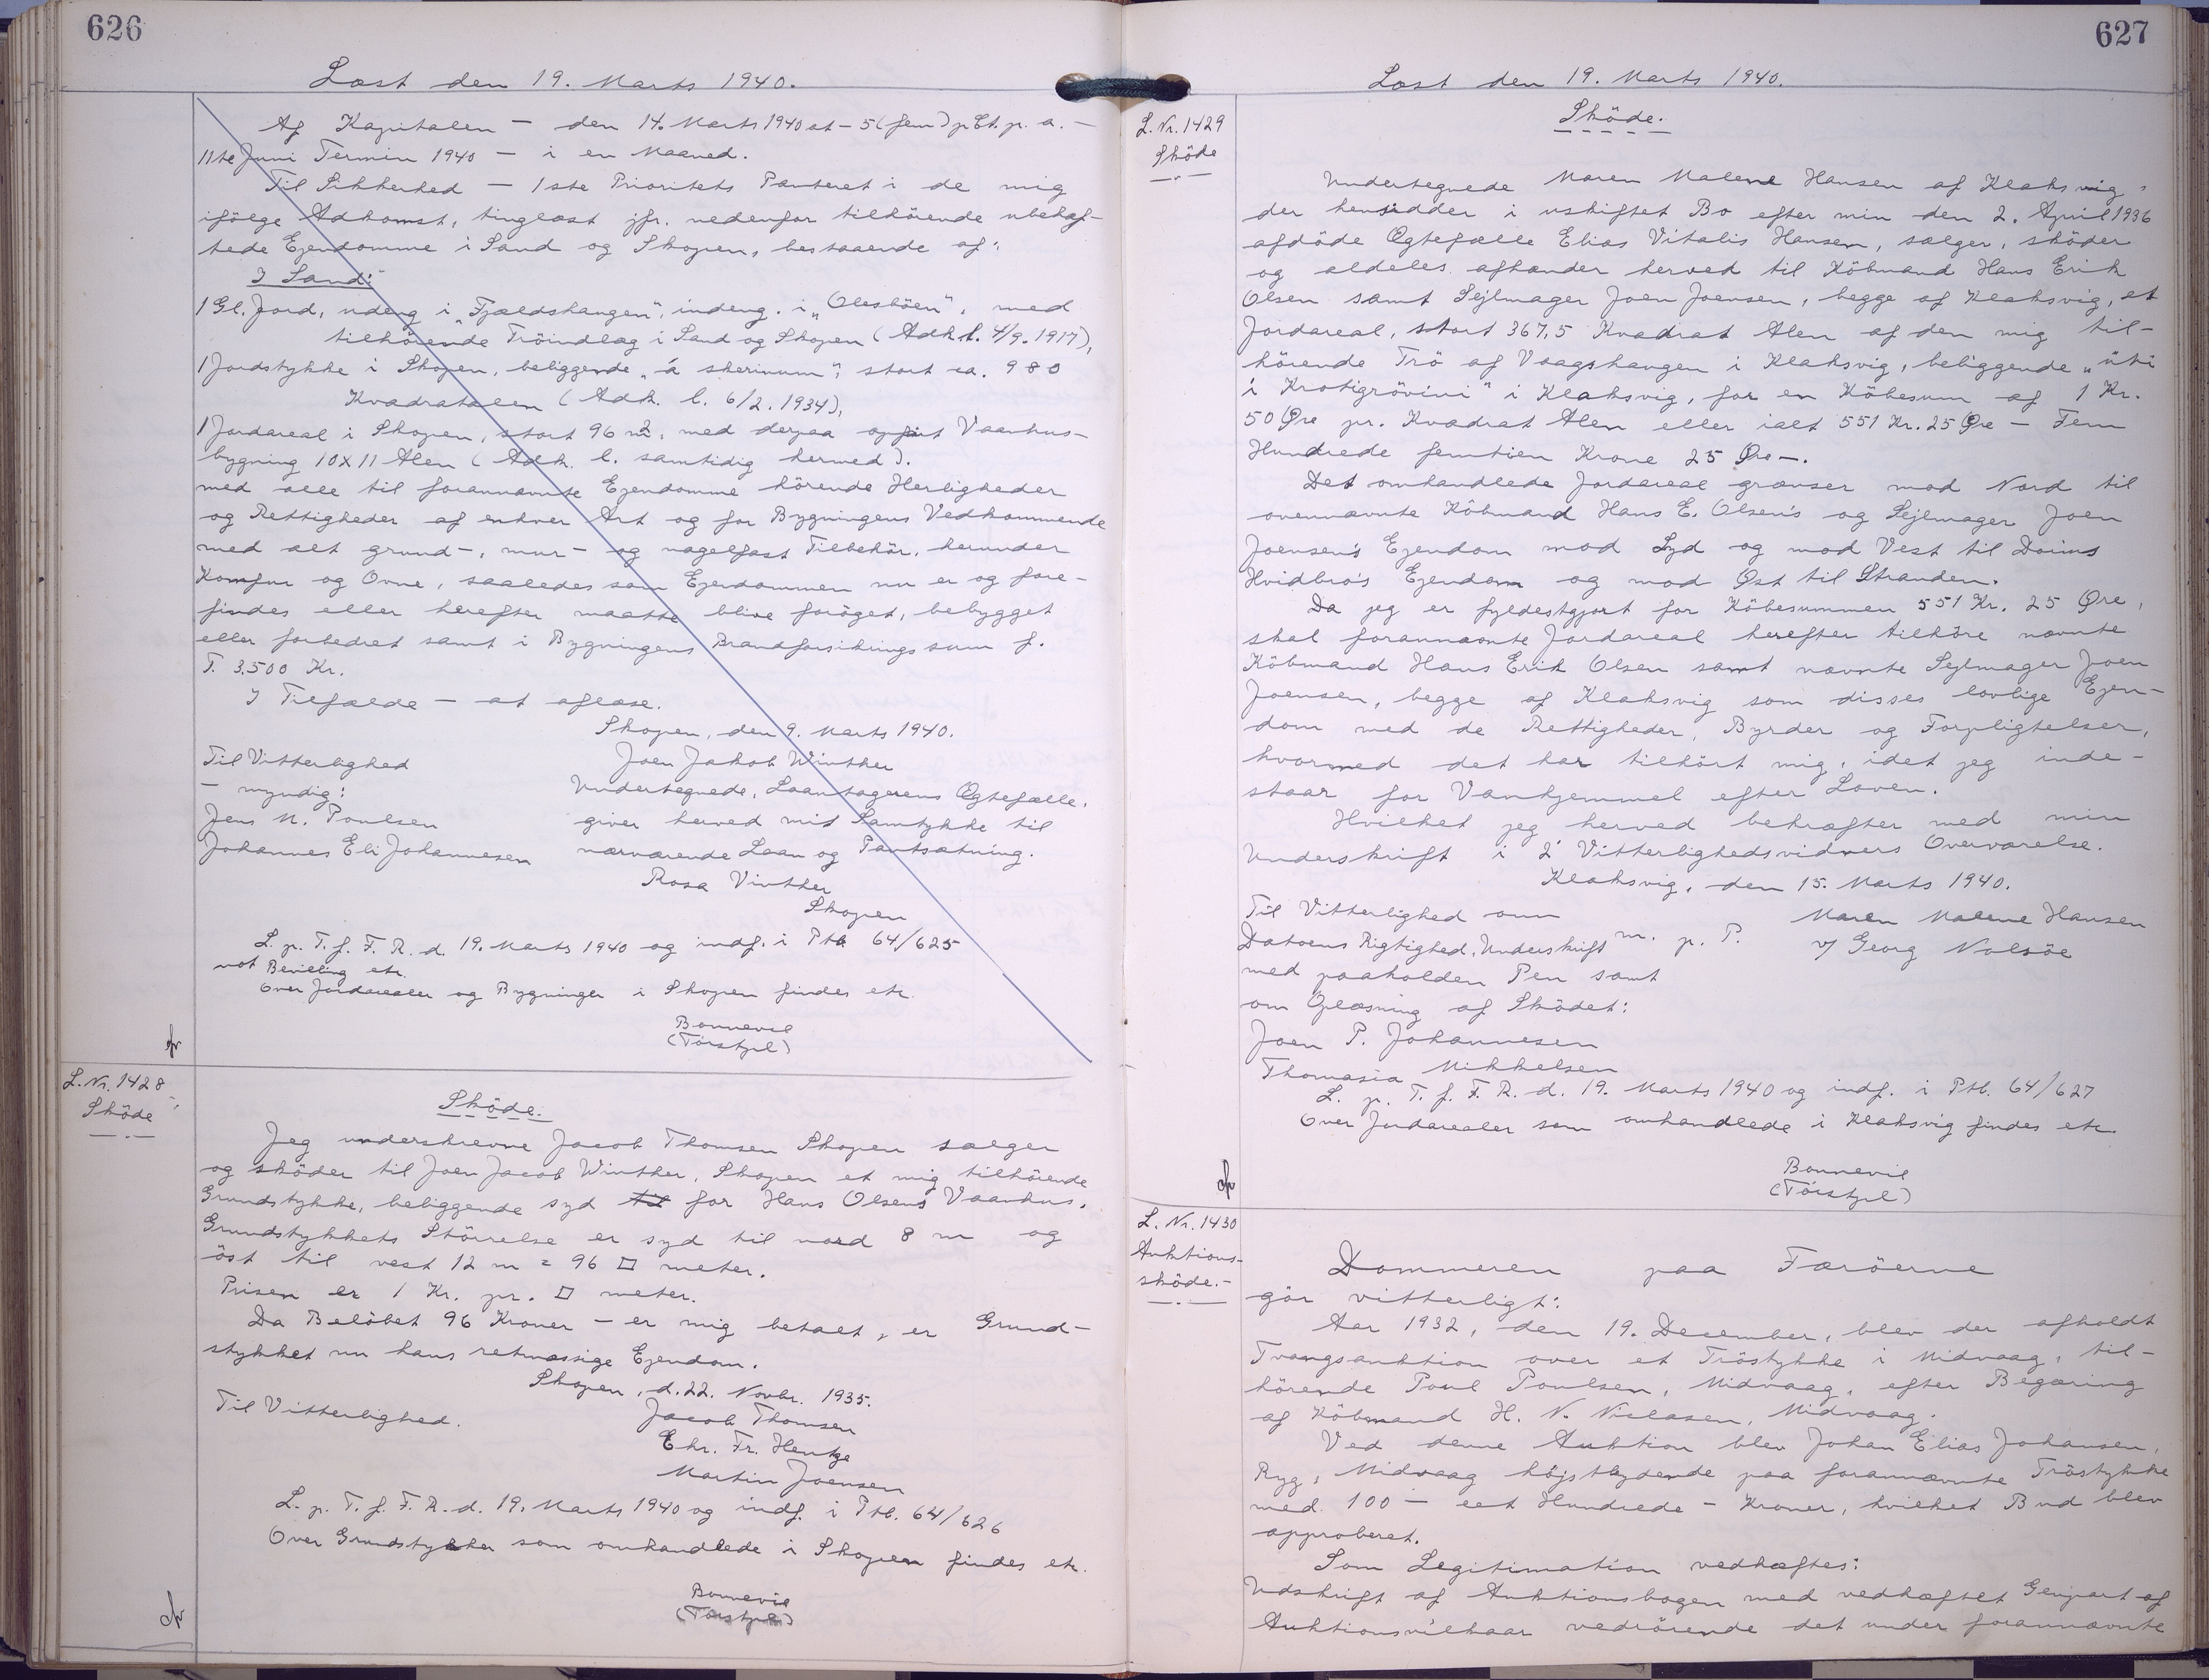 626
Læst den 19. Marts 1940.
Af Kapitalen – den 14. Marts 1940 at – 5 (fem) pCt. p. a. –
11te Juni Termin 1940 – i en Maaned.
Til Sikkerhed – 1ste Prioritets Panteret i de mig
ifölge Adkomst, tinglæst jfr. nedenfor tilhörende ubehæf-
tede Ejendomme i Sand og Skopen, bestaaende af:
I Sand:
1 Gl. Jord, udeng i „Fjældshangen“, indeng. i „Olesböen“, med
tilhörende Tröindlæg i Sand og Skopen (Adk. l. 4/9. 1917),
1 Jordstykke i Skopen, beliggende „á skerinum“, stort ca. 980
Kvadratalen (Adk. l. 6/2. 1934),
1 Jordareal i Skopen, stort 96 m2, med derpaa opfört Vaanhus-
bygning 10x11 Alen (Adk. l. samtidig hermed).
med alle til forannævnte Ejendomme hörende Herligheder
og Rettigheder af enhver Art og for Bygningens Vedkommende
med alt grund-, mur- og nagelfast Tilbehör, herunder
Komfur og Ovne, saaledes som Ejendommen nu er og fore-
findes eller herefter maatte blive foröget, bebygget
eller forbedret samt i Bygningens Brandforsikringssum f.
T. 3.500 Kr.
I Tilfælde – at aflæse.
Skopen, den 9. Marts 1940.
Til Vitterlighed
Joen Jakob Winther
– myndig:
Undertegnede, Laantagerens Ægtefælle,
Jens M. Poulsen
giver herved mit Samtykke til
Johannes Eli Johannesen
nærværende Laan og Pantsætning.
Rosa Vinther
Skopen
L. p. T. f. F. R. d. 19. Marts 1940 og indf. i Ptb. 64/625
mod Bevilling etc.
Over Jordarealer og Bygninger i Skopen findes etc.
Bonnevie
(Tórstpl)
L. Nr. 1428
Sköde
Sköde.
Jeg underskrevne Jacob Thomsen Skopen sælger
og sköder til Joen Jacob Winther, Skopen et mig tilhörende
Grundstykke, beliggende syd til for Hans Olsens Vaanhus.
Grundstykkets Störrelse er syd til nord 8 m og
öst til vest 12 m = 96 □ meter.
Prisen er 1 Kr. pr. □ meter.
Da Belöbet 96 Kroner – er mig betalt, er Grund-
stykket nu hans retmæssige Ejendom.
Skopen, d. 22. Novbr. 1935.
Til Vitterlighed.
Jacob Thomsen
Chr. Fr. Hentze
Martin Joensen
L. p. T. f. F. R. d. 19. Marts 1940 og indf. i Ptb. 64/626
Over Grundstykker som omhandlede i Skopen findes etc.
Bonnevie
(Tórstpl)
627
Læst den 19. Marts 1940.
L. Nr. 1429
Sköde
Sköde.
Undertegnede Maren Malene Hansen af Klaksvig,
der hensidder i uskiftet Bo efter min den 2. April 1936
afdöde Ægtefælle Elias Vitalis Hansen, sælger, sköder
og aldeles afhænder herved til Köbmand Hans Erik
Olsen samt Sejlmager Joen Joensen, begge af Klaksvig, et
Jordareal, stort 367,5 Kvadrat Alen af den mig til-
hörende Trö af Vaagshangen i Klaksvig, beliggende „úti
í Krotigrövini“ i Klaksvig, for en Köbesum af 1 Kr.
50 Øre pr. Kvadrat Alen eller ialt 551 Kr. 25 Øre – Fem
Hundrede femtien Krone 25 Øre –.
Det omhandlede Jordareal grænser mod Nord til
ovennævnte Köbmand Hans E. Olsen's og Sejlmager Joen
Joensen's Ejendom mod Syd og mod Vest til Daims
Hvidbro's Ejendom og mod Øst til Stranden.
Da jeg er fyldestgjort for Köbesummen 551 Kr. 25 Øre,
skal forannævnte Jordareal herefter tilhöre nævnte
Köbmand Hans Erik Olsen samt nævnte Sejlmager Joen
Joensen, begge af Klaksvig som disses lovlige Ejen-
dom med de Rettigheder, Byrder og Forpligtelser,
hvormed det har tilhört mig, idet jeg inde-
staar for Vanhjemmel efter Loven.
Hvilket jeg herved bekræfter med min
Underskrift i 2 Vitterlighedsvidners Overværelse.
Klaksvig, den 15. Marts 1940.
Til Vitterlighed om
Maren Malene Hansen
Datoens Rigtighed, Underskrift m. p. P.
v/ Georg Nolsöe
med paaholden Pen samt
om Oplæsning af Sködet:
Joen P. Johannesen
Thomasia Mikkelsen
L. p. T. f. F. R. d. 19. Marts 1940 og indf. i Ptb. 64/627
Over Jordarealer som omhandlede i Klaksvig findes etc.
Bonnevie
(Tórstpl)
L. Nr. 1430
Auktions-
sköde.-
Dommeren paa Færöerne
gör vitterligt:
Aar 1932, den 19. December, blev der afholdt
Tvangsauktion over et Tröstykke i Midvaag, til-
hörende Poul Poulsen, Midvaag, efter Begæring
af Köbmand H. N. Niclasen, Midvaag.
Ved denne Auktion blev Johan Elias Johansen,
Ryg, Midvaag höjstbydende paa forannævnte Tröstykke
med 100 – eet Hundrede – Kroner, hvilket Bud blev
approberet.
Som Legitimation vedhæftes:
Udskrift af Auktionsbogen med vedhæftet Genpart af
Auktionsvilkaar vedrörende det under forannævnte